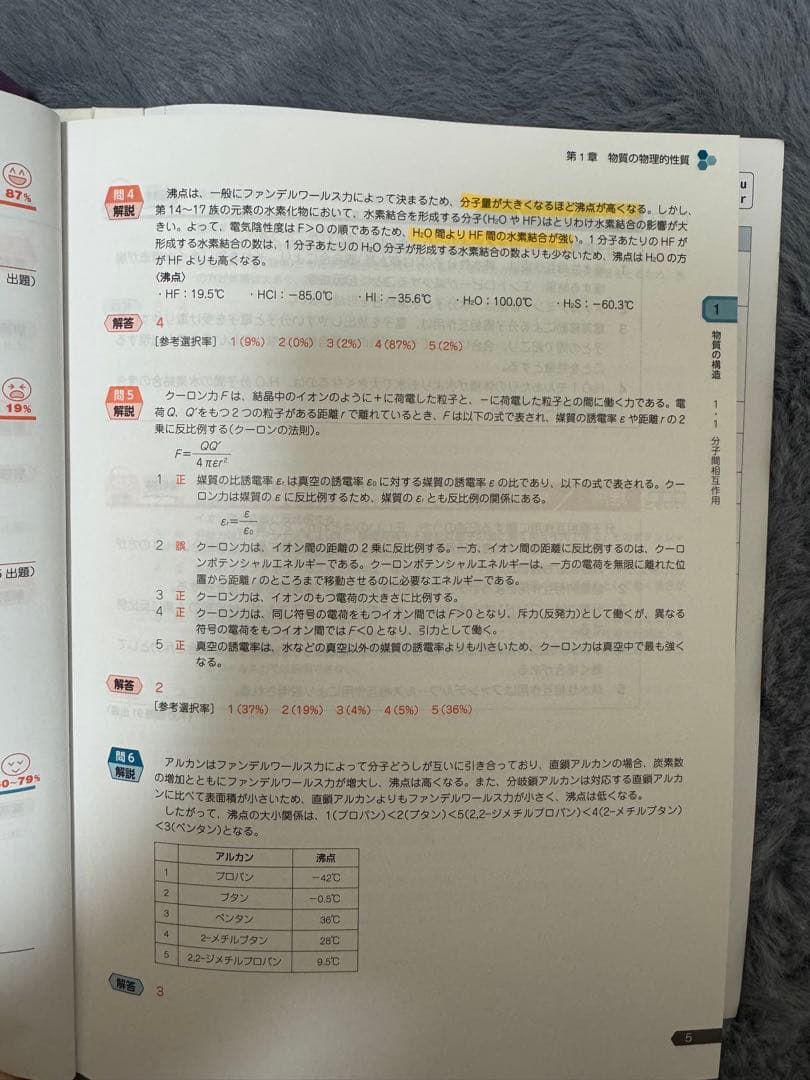 87%
出題)
19%
出題)
0~79%
第1章 物質の物理的性質
問4
解説
沸点は、一般にファンデルワールス力によって決まるため、分子量が大きくなるほど沸点が高くなる。しかし、
第14~17族の元素の水素化物において、水素結合を形成する分子(H₂OやHF)はとりわけ水素結合の影響が大
きい。よって、電気陰性度はF>Oの順であるため、H₂O間よりHF間の水素結合が強い。1分子あたりのHFが
形成する水素結合の数は、1分子あたりのH₂O分子が形成する水素結合の数よりも少ないため、沸点はH₂Oの方
がHFよりも高くなる。
〈沸点〉
・HF:19.5℃ ・HCl:−85.0℃ ・HI:−35.6℃ ・H₂O:100.0℃ ・H₂S:−60.3℃
解答 4
[参考選択率] 1(9%) 2(0%) 3(2%) 4(87%) 5(2%)
問5
解説
クーロン力Fは、結晶中のイオンのように+に荷電した粒子と、−に荷電した粒子との間に働く力である。電
荷Q、Q′をもつ2つの粒子がある距離rで離れているとき、Fは以下の式で表され、媒質の誘電率εや距離rの2
乗に反比例する(クーロンの法則)。
F=QQ′/4πεr²
1 正 媒質の比誘電率εrは真空の誘電率ε₀に対する媒質の誘電率εの比であり、以下の式で表される。クー
ロン力は媒質のεに反比例するため、媒質のεrとも反比例の関係にある。
εr=ε/ε₀
2 誤 クーロン力は、イオン間の距離の2乗に反比例する。一方、イオン間の距離に反比例するのは、クーロ
ンポテンシャルエネルギーである。クーロンポテンシャルエネルギーは、一方の電荷を無限に離れた位
置から距離rのところまで移動させるのに必要なエネルギーである。
3 正 クーロン力は、イオンのもつ電荷の大きさに比例する。
4 正 クーロン力は、同じ符号の電荷をもつイオン間ではF>0となり、斥力(反発力)として働くが、異なる
符号の電荷をもつイオン間ではF<0となり、引力として働く。
5 正 真空の誘電率は、水などの真空以外の媒質の誘電率よりも小さいため、クーロン力は真空中で最も強く
なる。
解答 2
[参考選択率] 1(37%) 2(19%) 3(4%) 4(5%) 5(36%)
問6
解説
アルカンはファンデルワールス力によって分子どうしが互いに引き合っており、直鎖アルカンの場合、炭素数
の増加とともにファンデルワールス力が増大し、沸点は高くなる。また、分岐鎖アルカンは対応する直鎖アルカ
ンに比べて表面積が小さいため、直鎖アルカンよりもファンデルワールス力が小さく、沸点は低くなる。
したがって、沸点の大小関係は、1(プロパン)<2(ブタン)<5(2,2-ジメチルプロパン)<4(2-メチルブタン)
<3(ペンタン)となる。
アルカン 沸点
1 プロパン −42℃
2 ブタン −0.5℃
3 ペンタン 36℃
4 2-メチルブタン 28℃
5 2,2-ジメチルプロパン 9.5℃
解答 3
1
物質の構造
1・1 分子間相互作用
5
u
r